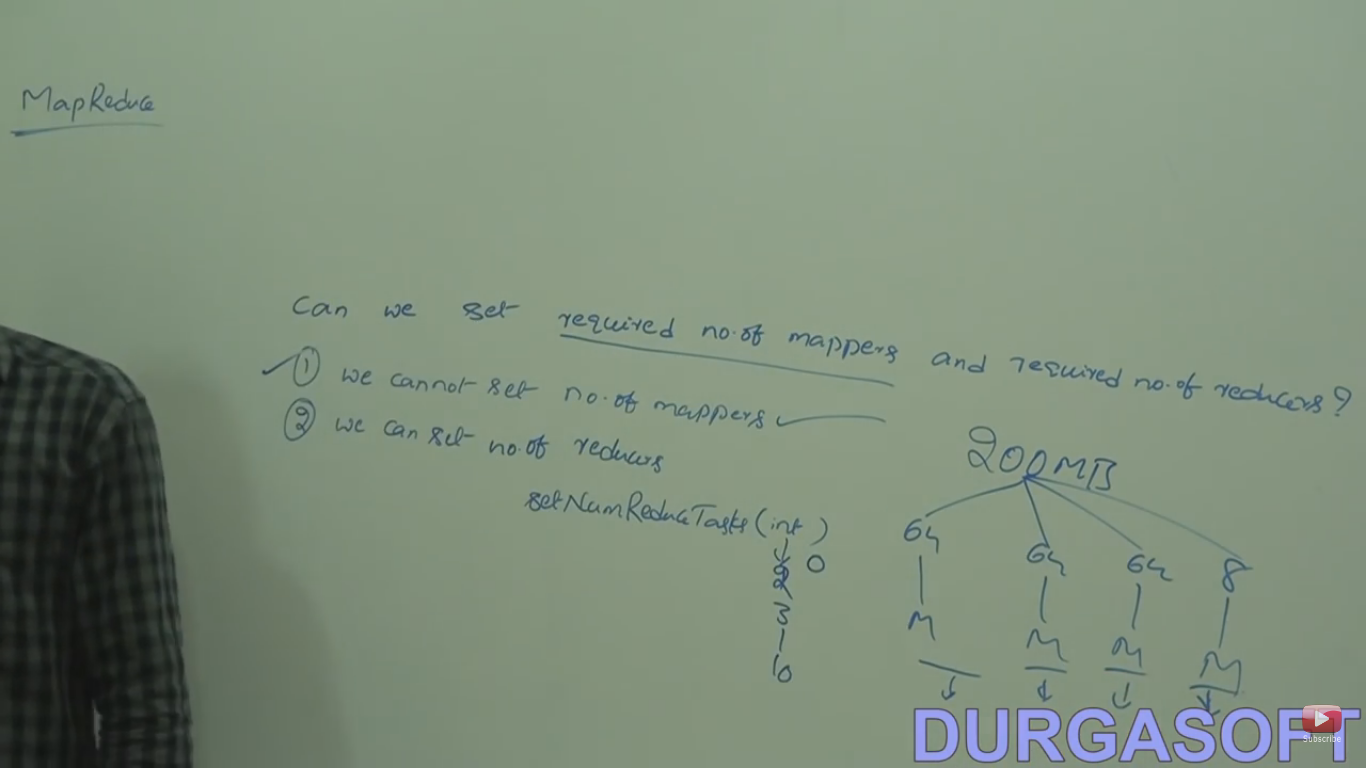 MapReduce
Can we set required no.of mappers and required no.of reducers?
① we cannot set no.of mappers
② we can set no.of reducers
setNumReduceTasks(int)
0
2
3
10
200MB
64 64 64 8
M M M M
DURGASOFT
Subscribe